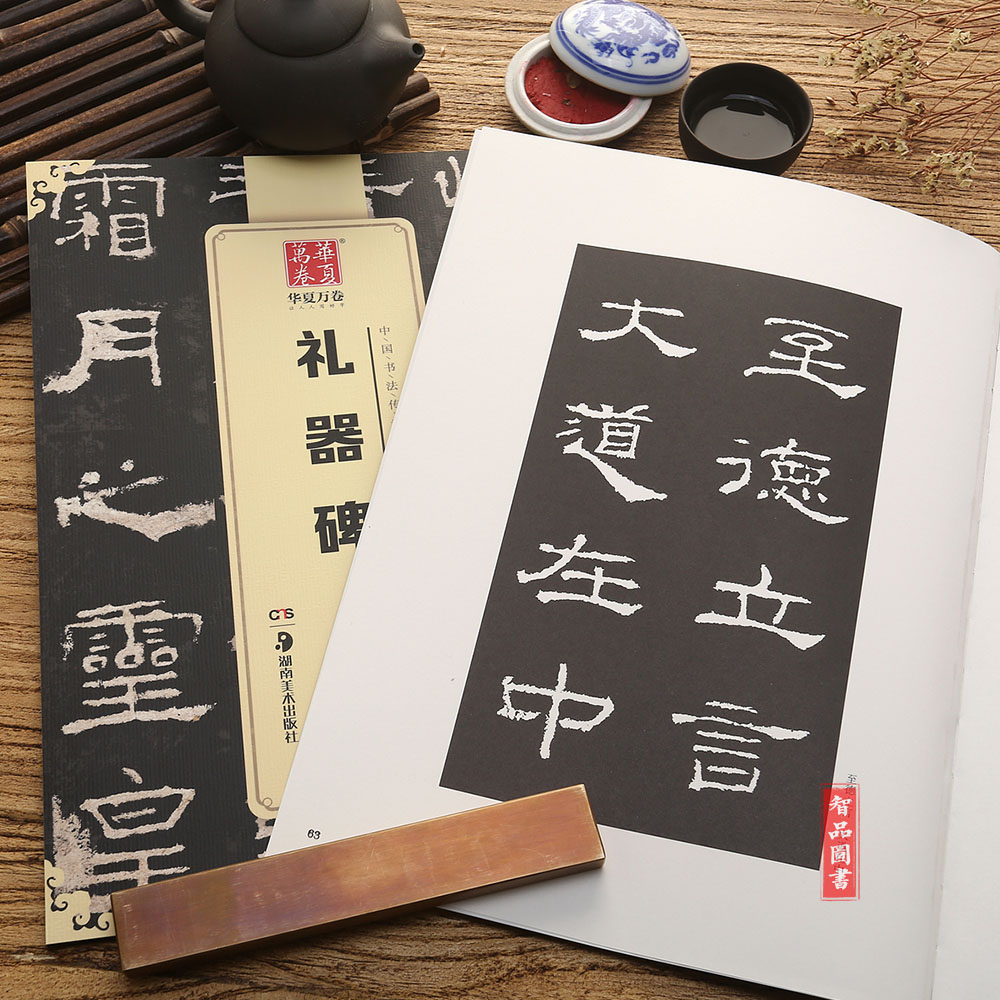 霜月之靈皇
華夏
萬卷
®
华夏万卷
礼器碑
中国书法传
CNS
湖南美术出版社
至德立言
大道在中
至德
63
智品圖書